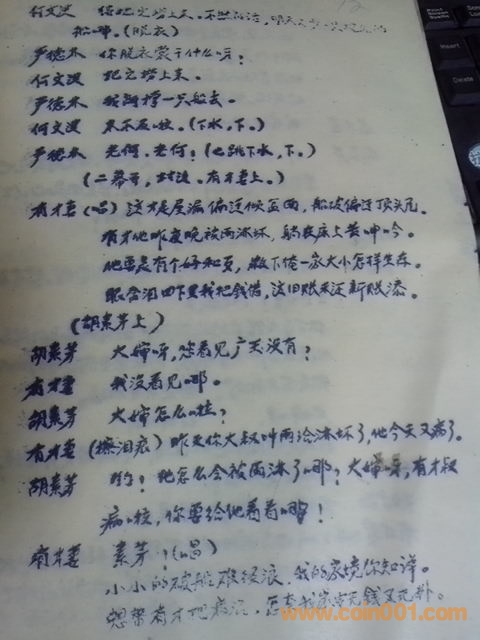 何文汉 你把它捞上来,不然的话,明天又少一只
船哪。(脱衣)
严德本 你脱衣裳干什么呀?
何文汉 把它捞上来。
严德本 我调撑一只船去。
何文汉 来不及啦。(下水,下。)
严德本 老何,老何!(也跳下水,下。)
(二幕开,村边。有才妻上。)
有才妻(唱)这才是屋漏偏迁似盆雨,船破偏迁顶头风。
有才他昨夜晚被雨淋坏,躺在床上黄呻吟。
他要是有个好和歹,撇下俺一家大小怎样生存。
眼含泪四下里我把钱借,这旧账未还新账添。
(胡素芳上)
胡素芳 大婶呀,您看见广天没有?
有才妻 我没看见哪。
胡素芳 大婶怎么啦?
有才妻(擦泪痕)昨天你大叔叫雨给淋坏了,他今天又病了。
胡素芳 哟!他怎么会被雨淋了哪?大婶呀,有才叔
病啦,你要给他看看哪!
有才妻 素芳!(唱)
小小的破船难经浪,我的家境你知详。
想帮有才把病治,怎奈我家中无钱又无补。
www.coin001.com